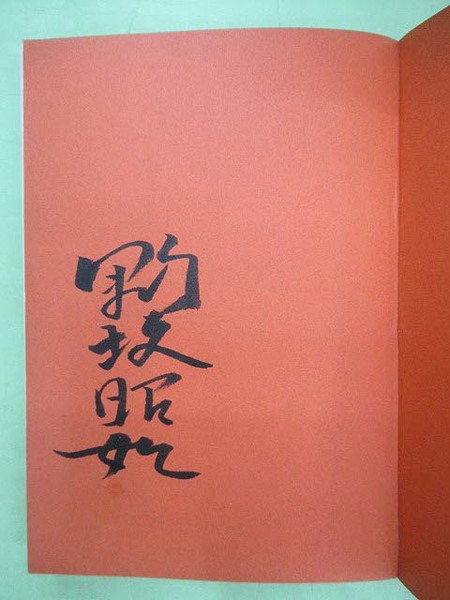 野坂昭如